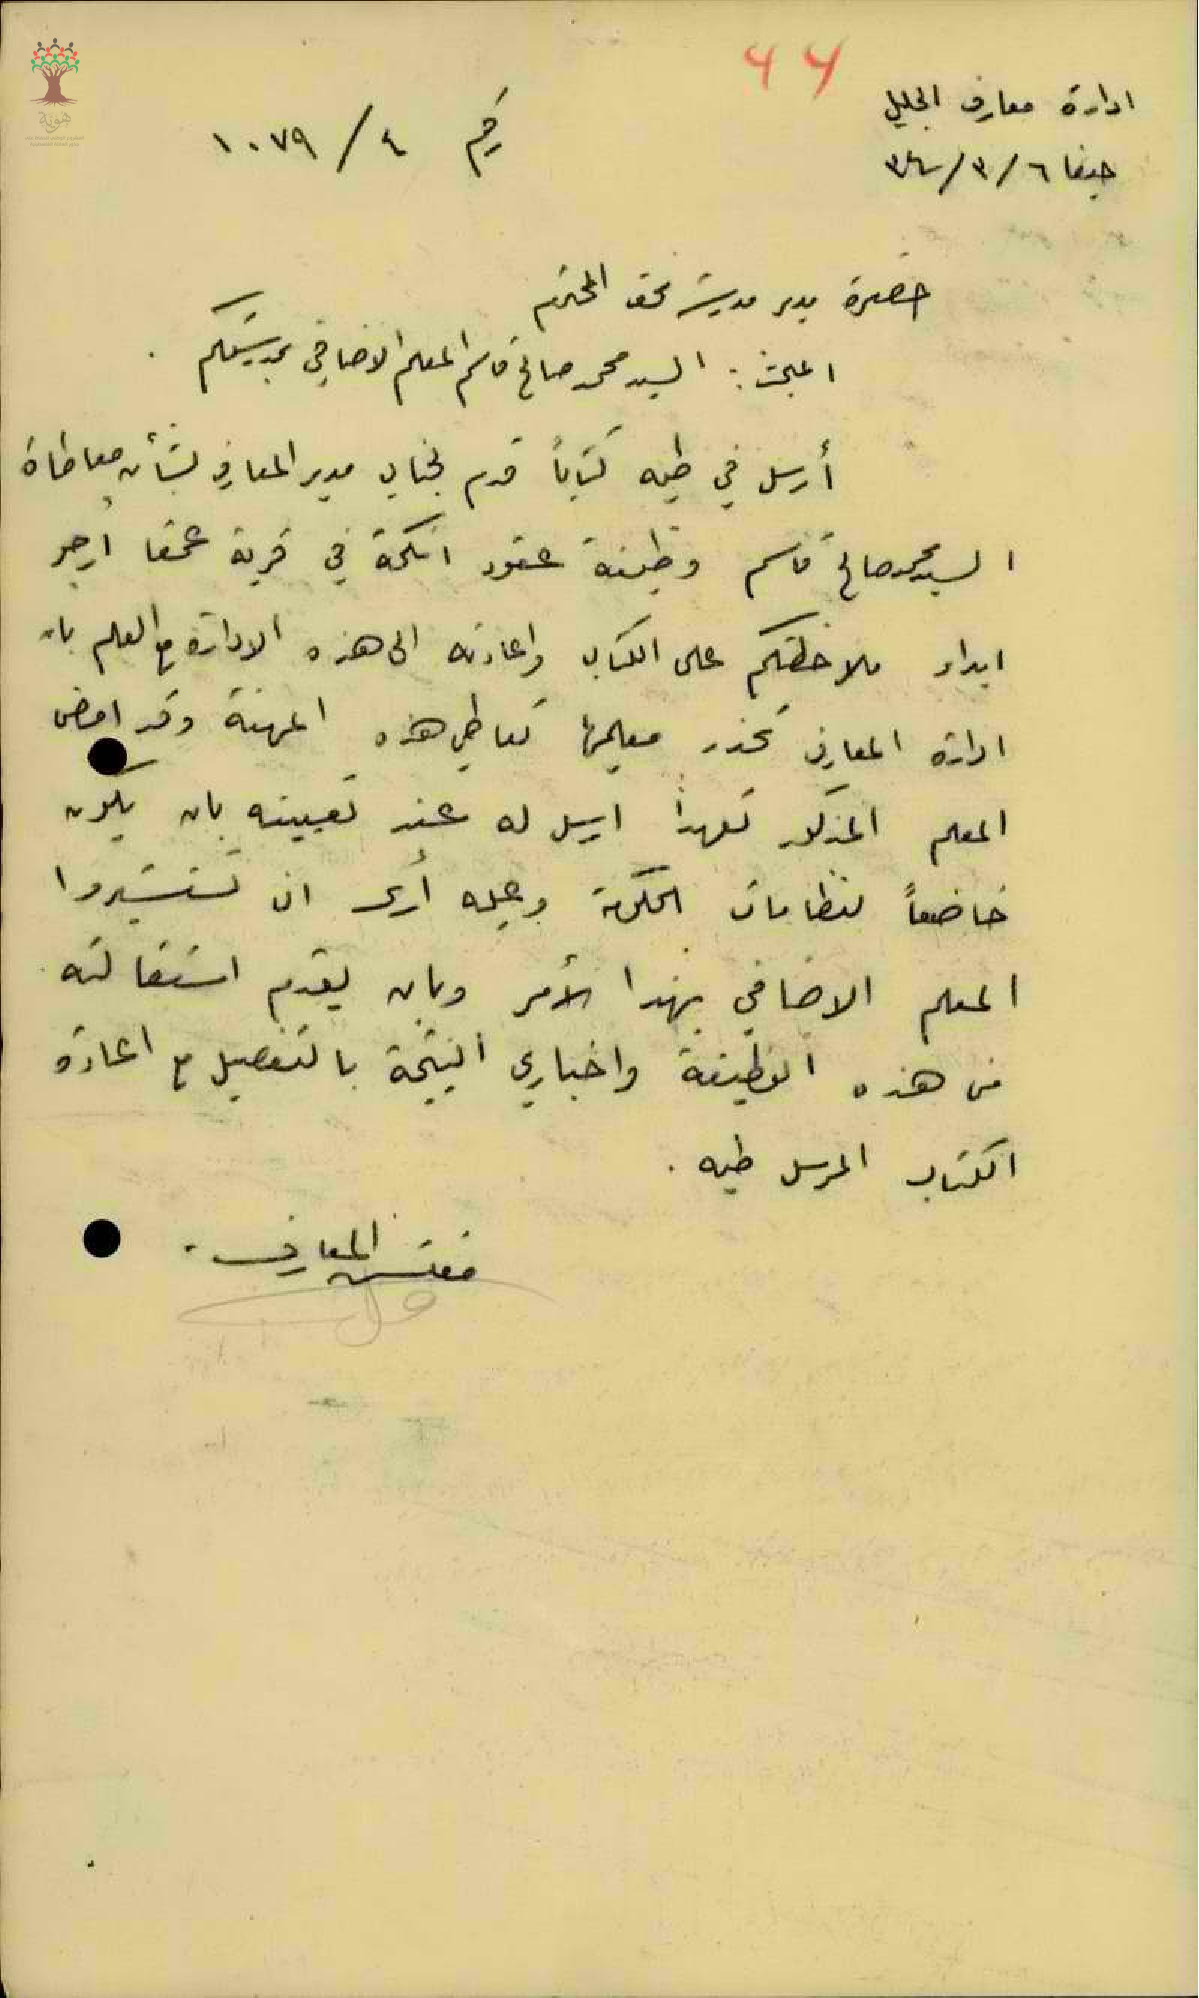 ٤٤
ادارة معارف الجليل
حيفا ٦/٣/٣٤
رقم ٤/١٠٧٩
حضرة مدير مدرسة عمقا المحترم
المبحث: السيد محمد صالح قاسم المعلم الاضافي بمدرستكم.
أرسل في طيه كتاباً قدم لجناب مدير المعارف بشأن معاطاة
السيد محمد صالح قاسم وظيفة عقود انكحة في قرية عمقا أرجو
ابداء ملاحظتكم على الكتاب واعادته الى هذه الادارة مع العلم بان
ادارة المعارف تحذر معلميها تعاطي هذه المهنة وقد امضى
المعلم المذكور تعهداً ارسل له عند تعيينه بان يكون
خاضعاً لنظامات الحكومة وعليه أرى ان تستشيروا
المعلم الاضافي بهذا الأمر وبان يقدم استقالته
من هذه الوظيفة واخباري النتيجة بالتفصيل مع اعادة
الكتاب المرسل طيه.
مفتش المعارف
هوية